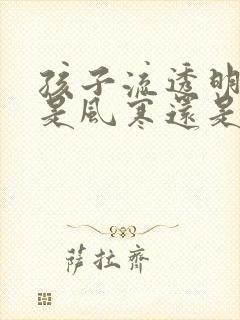 孩子流透明
是風寒還是
薩拉齊